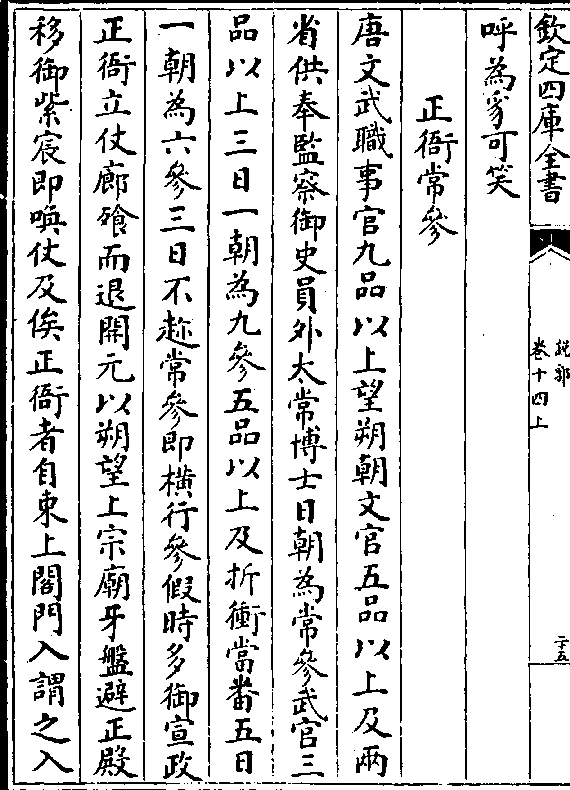 欽定四庫全書
說郛
卷十四上
二十五
呼為豸可笑
正衙常參
唐文武職事官九品以上望朔朝文官五品以上及兩
省供奉監察御史員外太常博士日朝為常參武官三
品以上三日一朝為九參五品以上及折衝當番五日
一朝為六參三日不趂常參即橫行參假時多御宣政
正衙立仗廊飱而退開元以朔望上宗廟牙盤避正殿
移御紫宸即喚仗及俟正衙者自東上閤門入謂之入